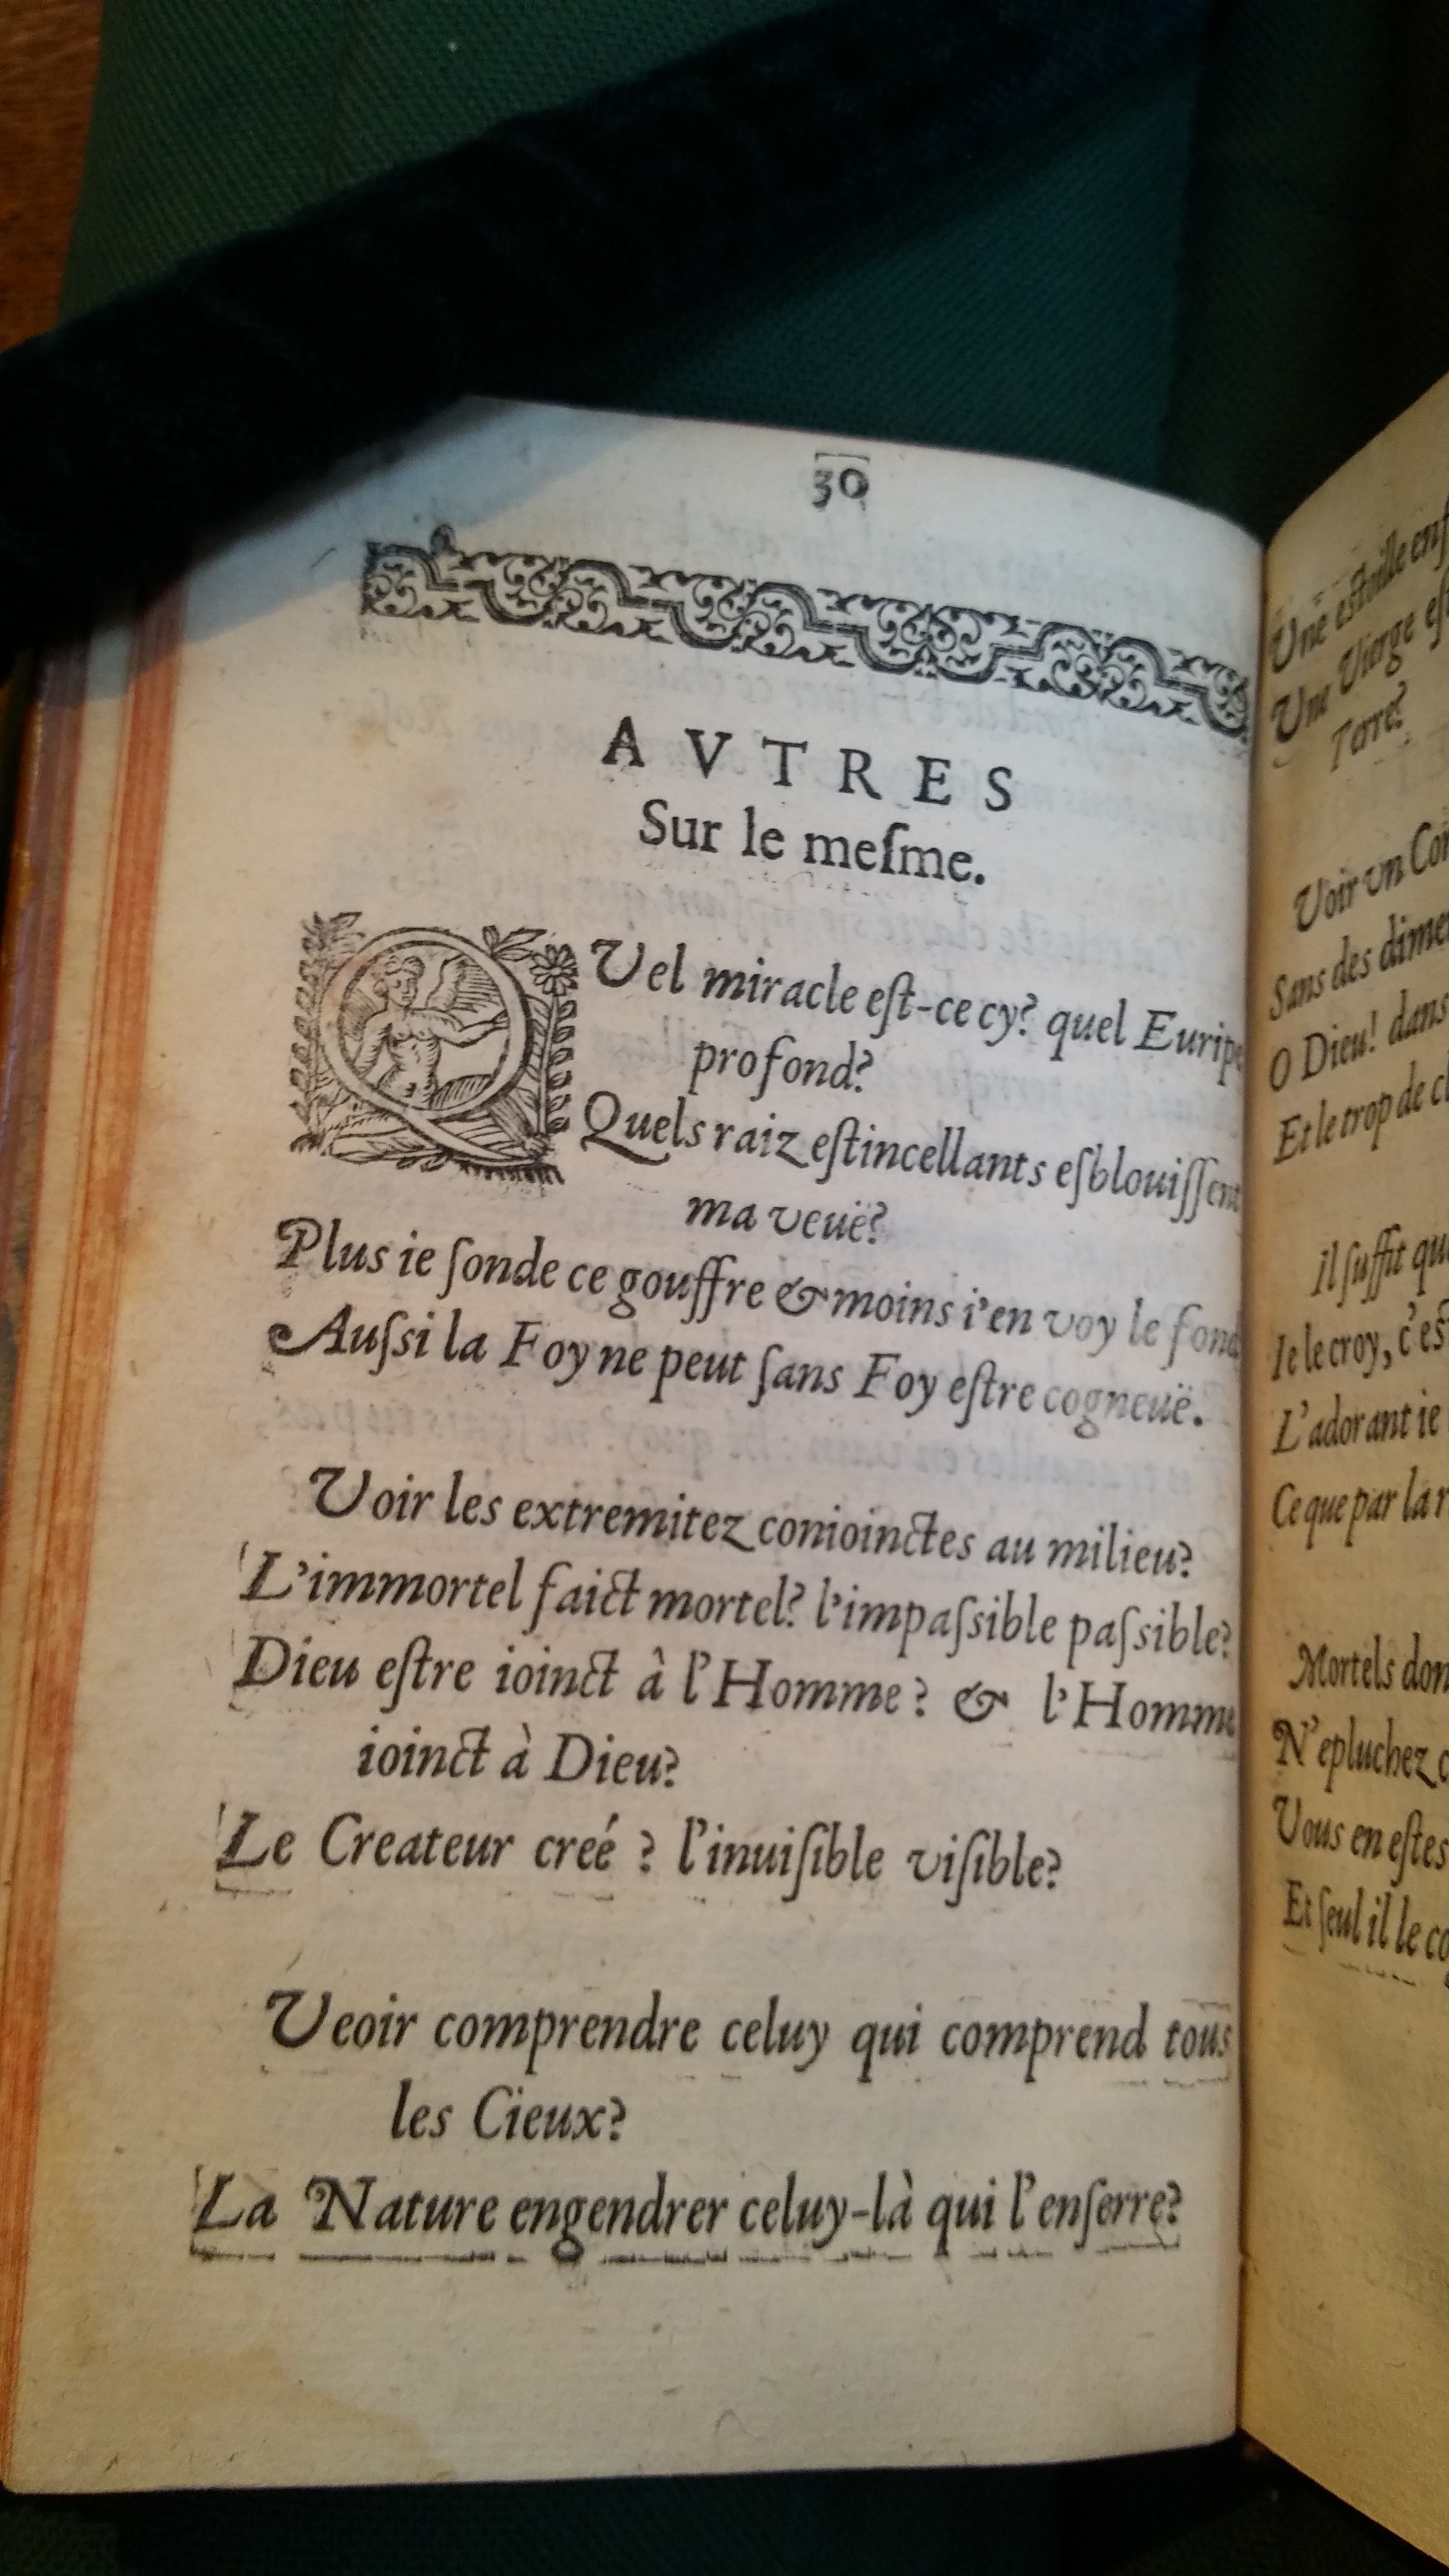 30
AVTRES
Sur le meſme.
QUel miracle eſt-ce cy? quel Euripe
profond?
Quels raiz eſtincellants eſblouiſſent
ma veuë?
Plus ie ſonde ce gouffre & moins i'en voy le fond
Auſsi la Foy ne peut ſans Foy eſtre cogneuë.
Voir les extremitez conioinctes au milieu?
L'immortel faict mortel? l'impaſsible paſsible?
Dieu eſtre ioinct â l'Homme? & l'Homme
ioinct à Dieu?
Le Createur creé? l'inuiſible viſible?
Veoir comprendre celuy qui comprend tous
les Cieux?
La Nature engendrer celuy-là qui l'enſerre?
Une eſtoille
Une Vierge
Terre?
Voir vn
Sans des
O Dieu! dans
Et le trop de
Il ſuffit
Ie le croy, c'eſt
L'adorant ie
Ce que par la
Mortels
N'epluchez
Vous en eſtes
Et ſeul il le